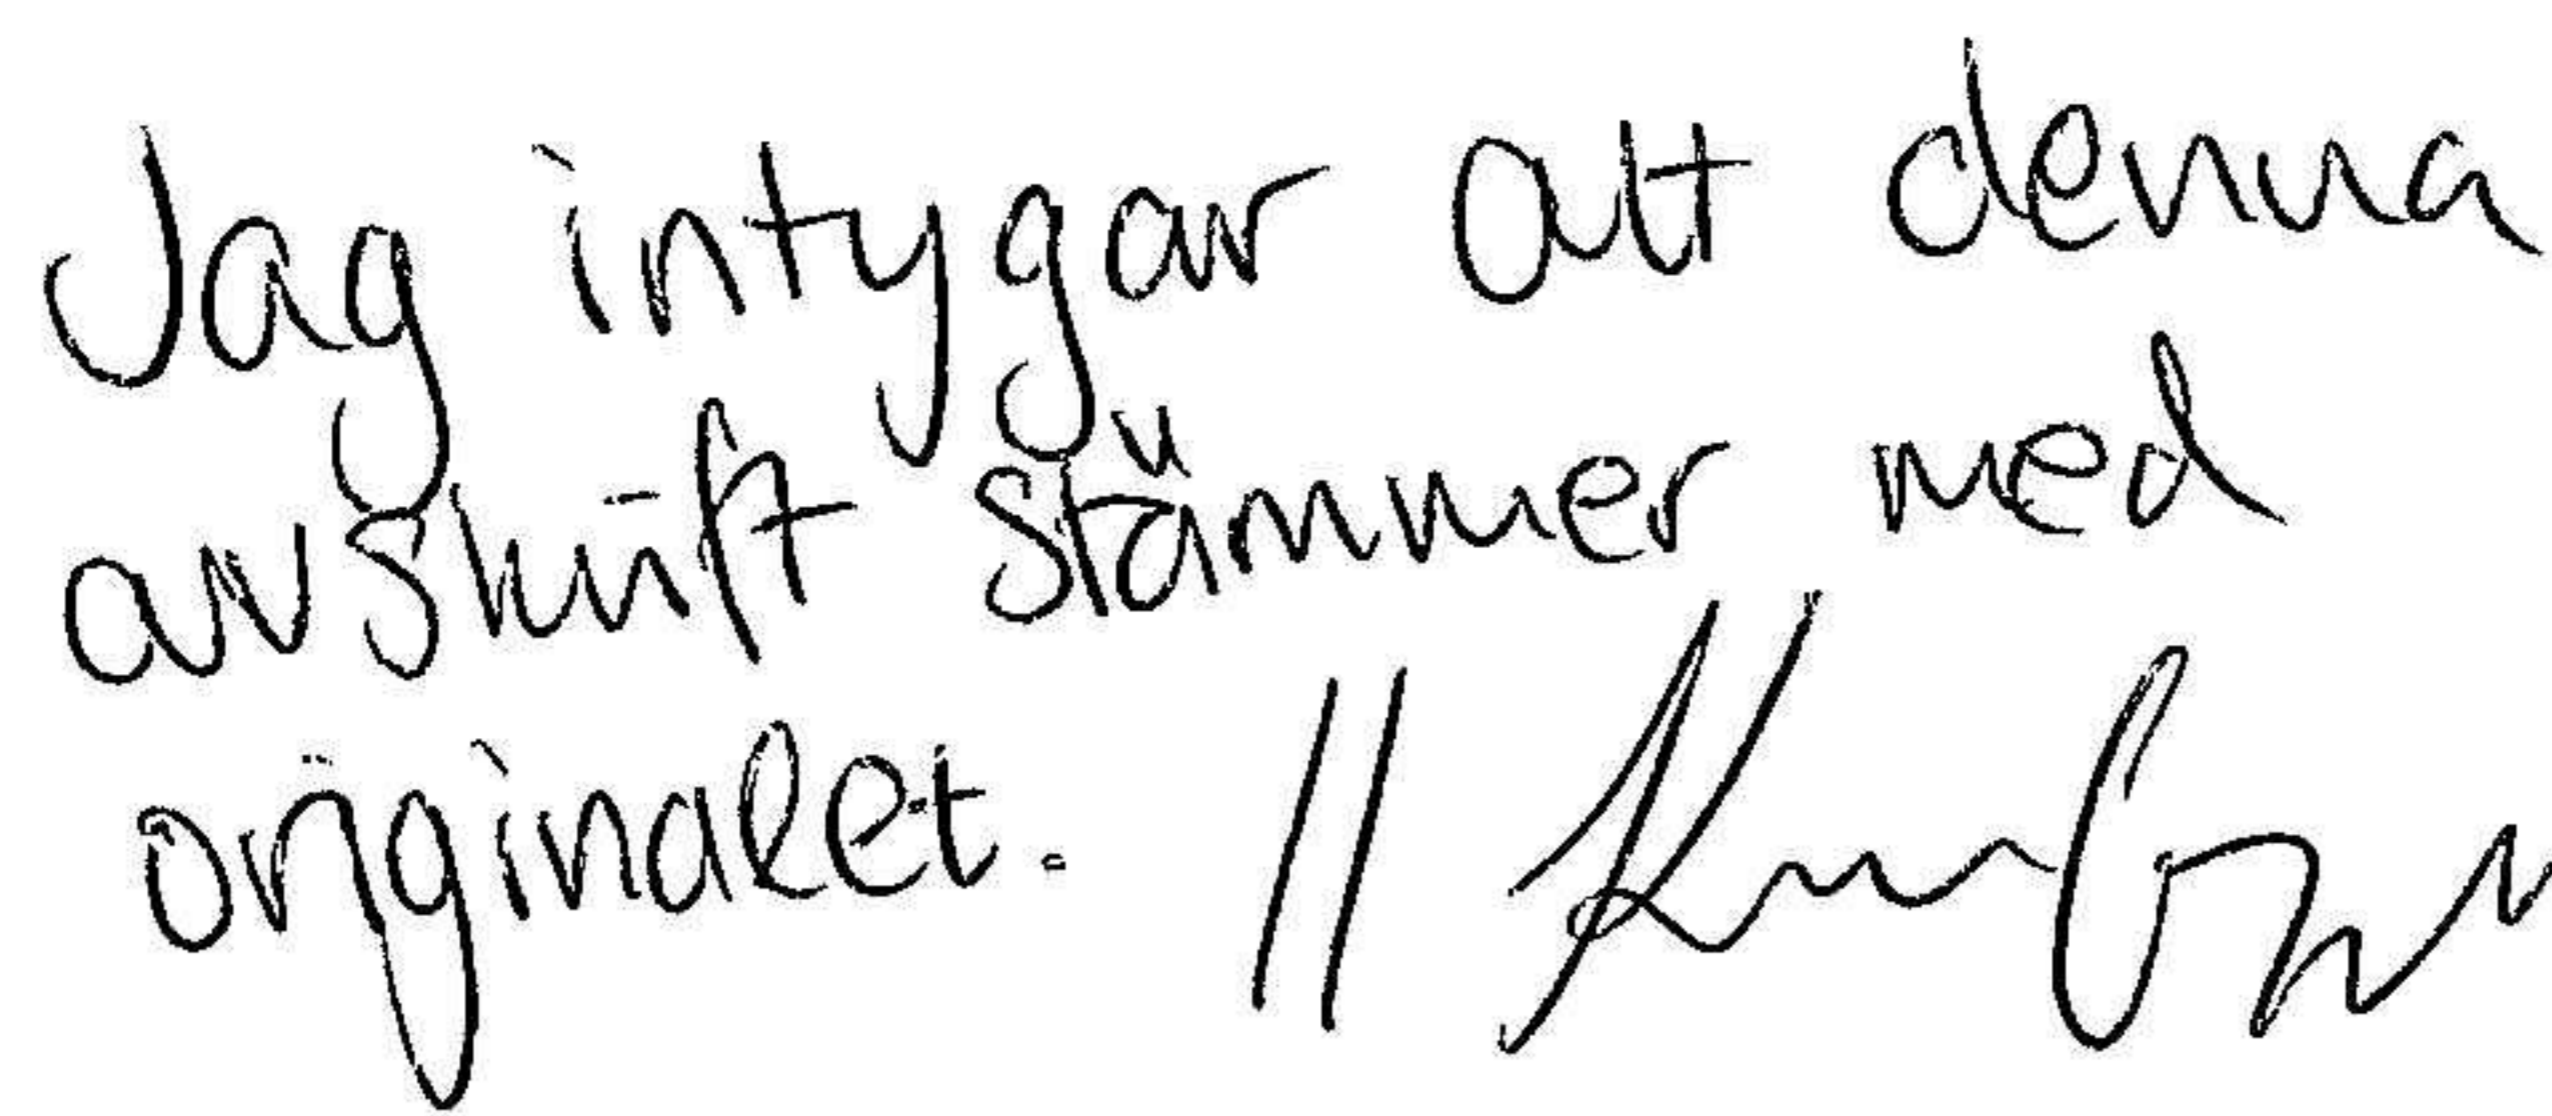 Jag intygar att denna
avskrift stämmer med
originalet. //